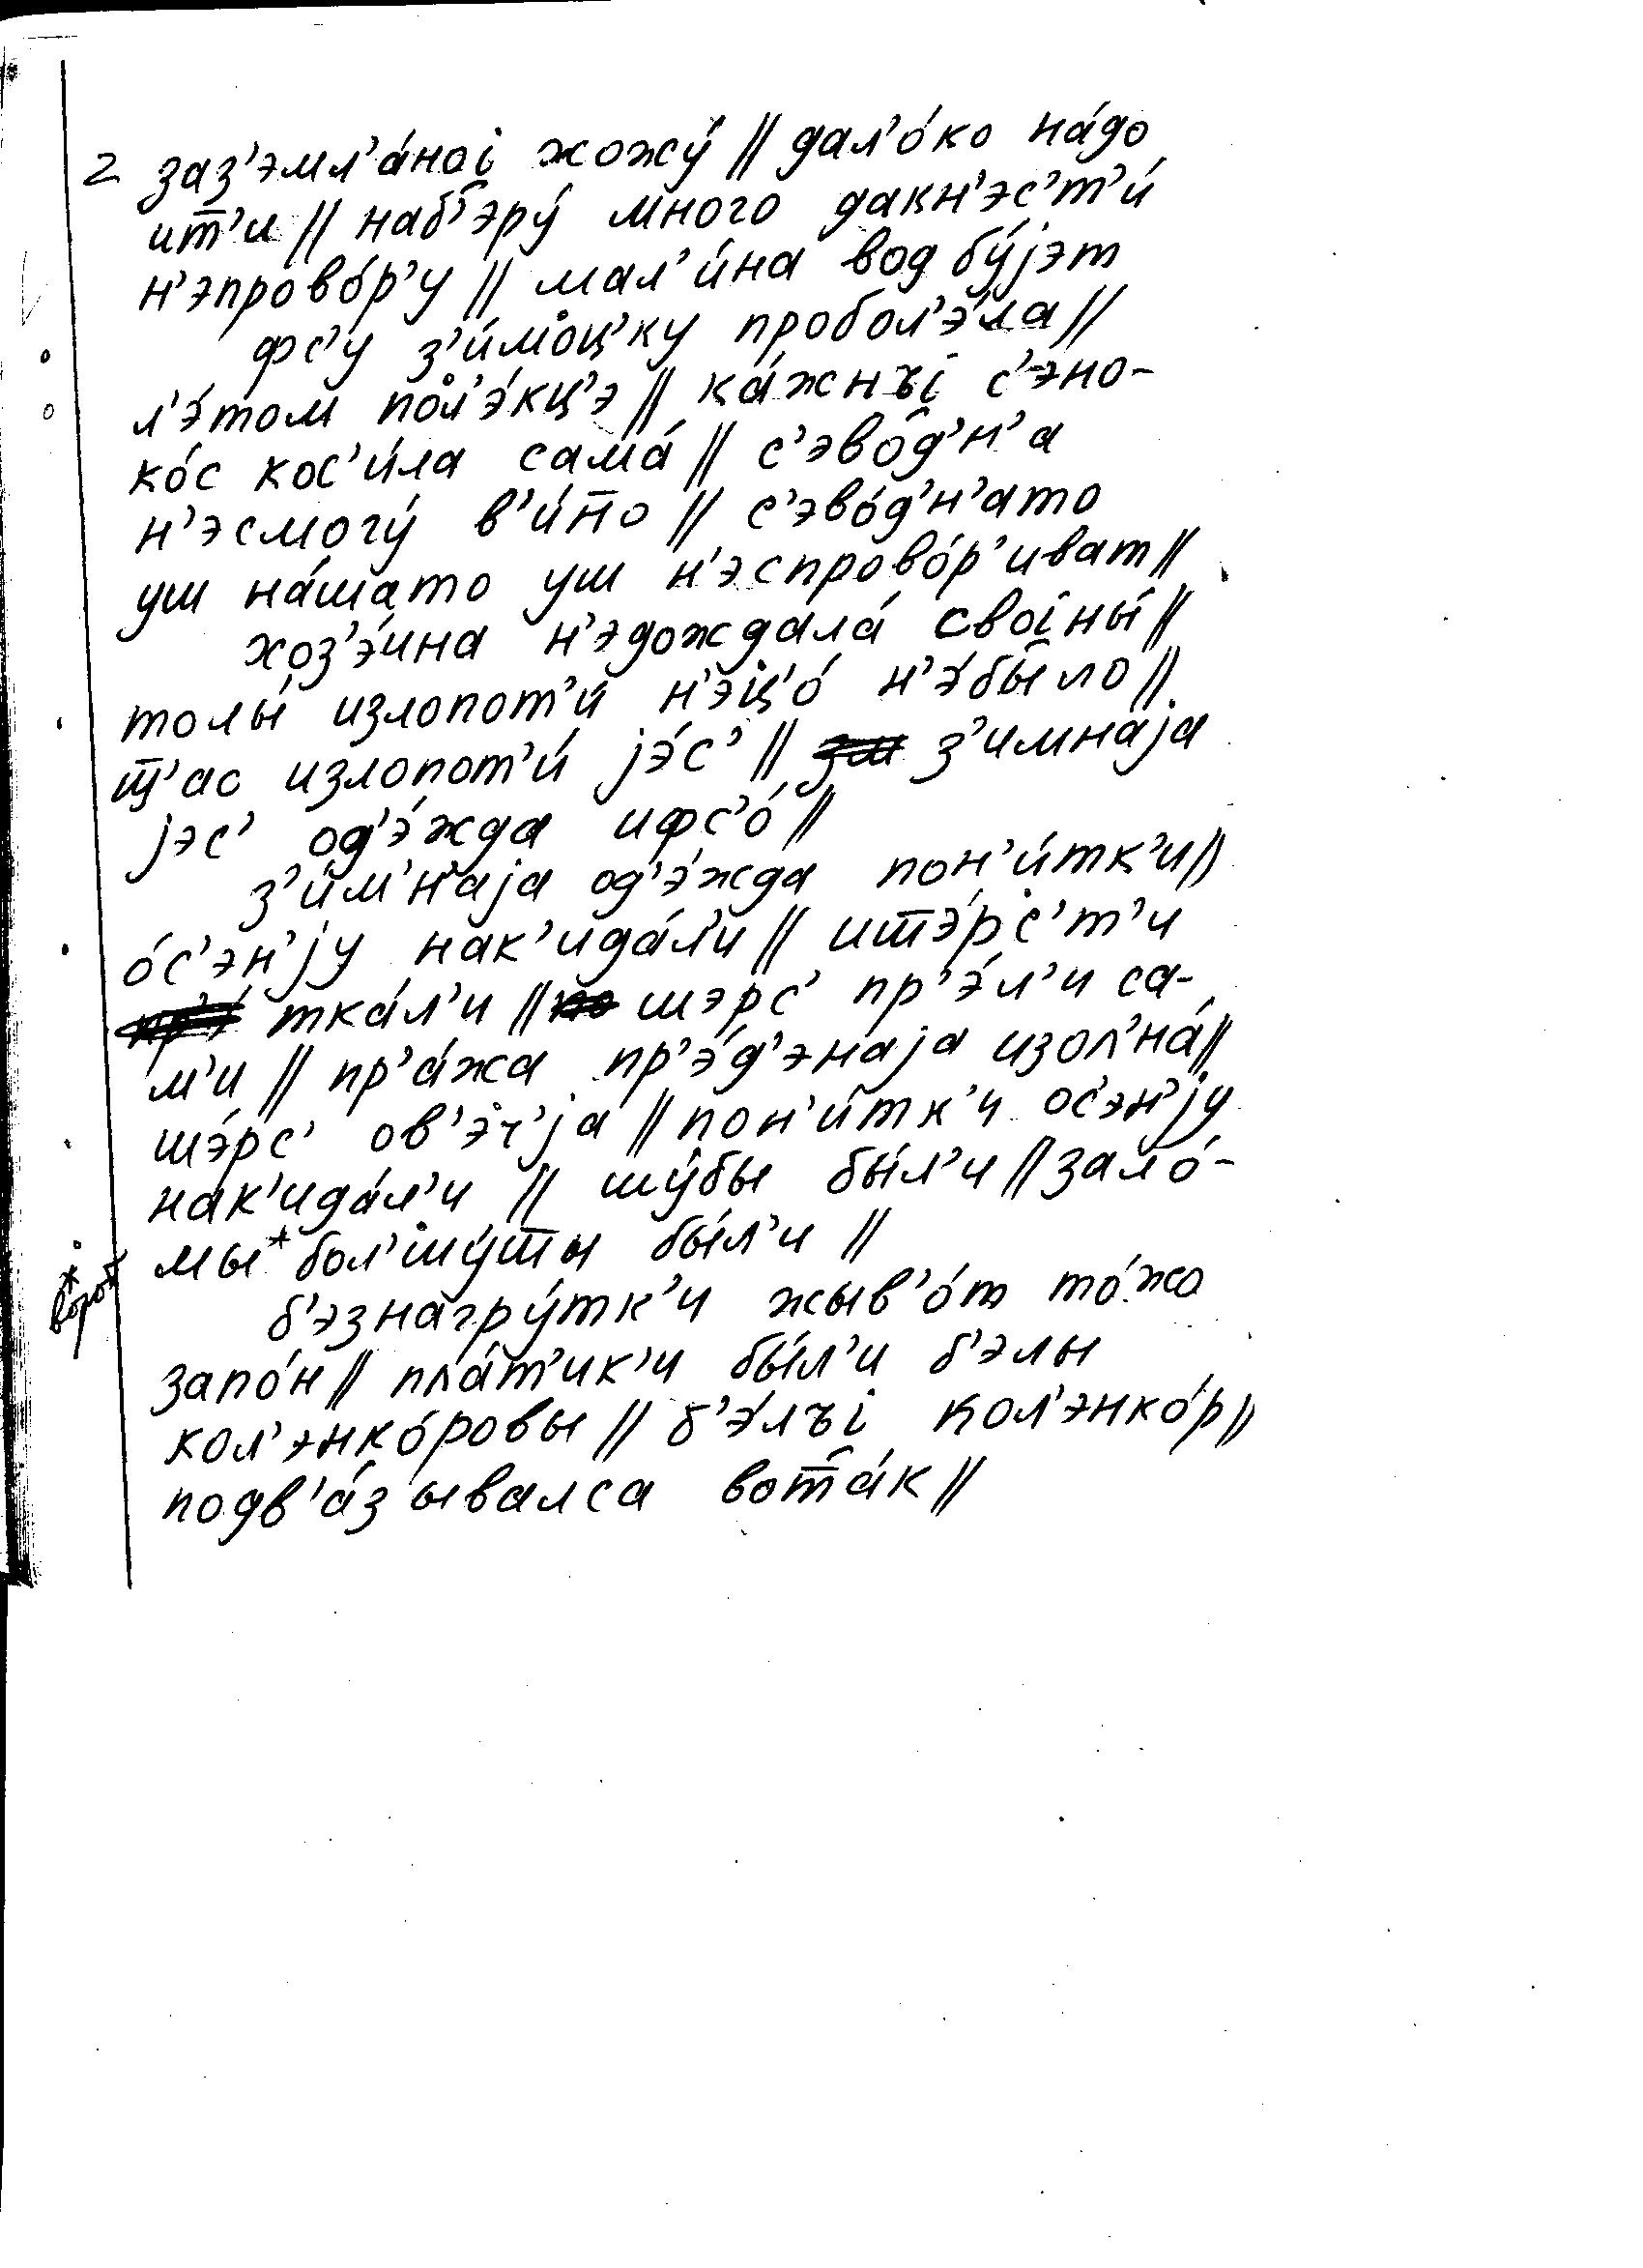 2 заз’эмл’а́ноі хожу́ // дал’о́ко на́до
ит̅’и // наб’эру́ много дакн’эс’т’и́
н’эпрово́р’у // мал’и́на вод бу́јэт
фс’у з’и́моц’ку пробол’э́ла //
л’э́том пол’э́кц’э // ка́жнъі с’эно-
ко́с кос’и́ла сама́ // с’эво́д’н’а
н’эсмогу́ в’и́то // с’эво́д’н’ато
уш на́шато уш н’эспрово́р’иват //
хоз’э́ина н’эдождала́ своіны́ //
толы́ излопот’и́ н’эц’о́ н’э́было //
т̅ц’ас излопот’и́ јэ́с’ // з’имнаја
јэс’ од’э́жда ифс’о́ //
з’и́м’н’аја од’э́жда пон’и́тк’и //
о́с’эн’ју нак’ида́л’и // ит̅э́рс’т’и
тка́л’и // шэрс’ пр’э́л’и са-
м’и // пр’а́жа пр’э́д’энаја изол’на́ //
шэ́рс’ ов’э́ч’ја // пон’и́тк’и ос’эн’ју
нак’ида́л’и // шу́бы бы́л’и // зало́-
мы* бол’шу́т̅ы бы́л’и //
* ворот
б’эзнагру́тк’и жыв’о́т то́жо
запо́н // пла́т’ик’и бы́л’и б’элы
кол’энко́ровы // б’э́лъі кол’энко́р //
подв’а́зывалса вот̅а́к //